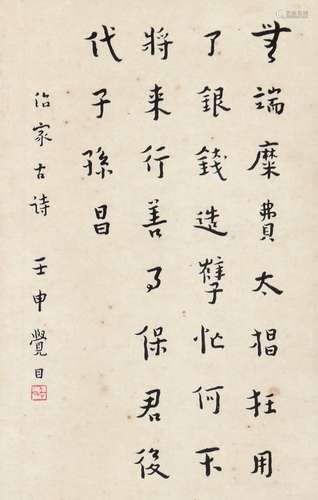 無端糜費太猖狂用
了銀錢造孽忙何不
將来行善事保君後
代子孫昌
治家古詩 壬申 覺目